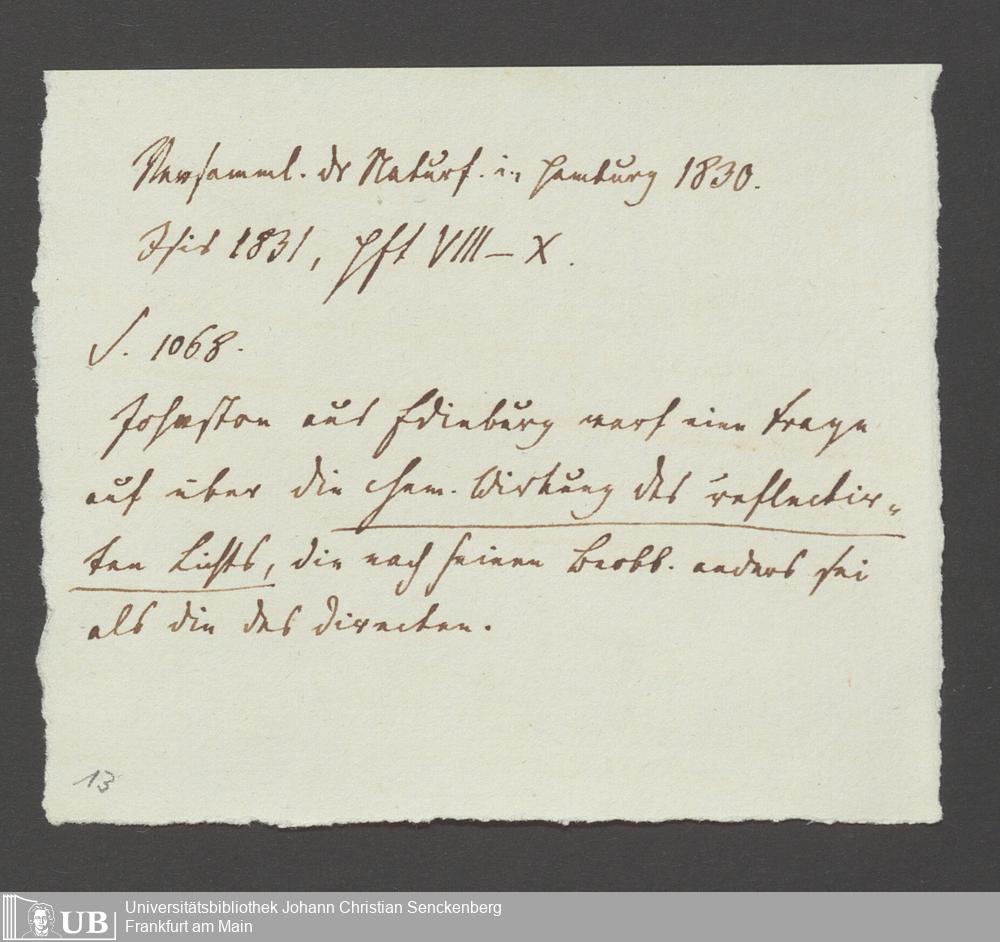 Versamml. dr Naturf. in Hamburg 1830.
Isis 1831, Hft VIII–X.
S. 1068.
Johnston aus Edinburg warf eine Frage
auf über die chem. Wirkung des reflectir-
ten Lichts, die nach seinen Beobb. anders sei
als die des directen.
13
UB
Universitätsbibliothek Johann Christian Senckenberg
Frankfurt am Main